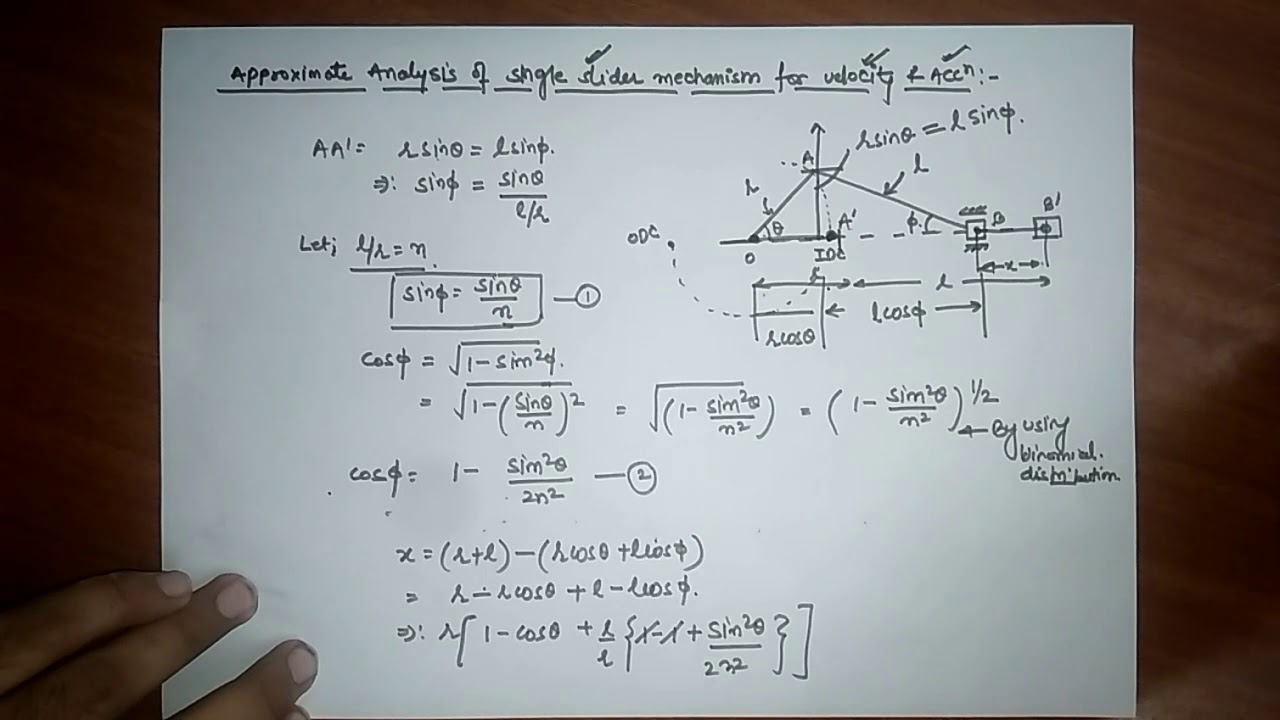 Approximate Analysis of single slider mechanism for velocity & Accⁿ:-
AA' = r sinθ = l sinφ.
⇒: sinφ = sinθ / l/r
Let; l/r = n.
sinφ = sinθ / n — ①
cosφ = √1 - sin²φ.
= √1 - (sinθ / n)² = √(1 - sin²θ / n²) = (1 - sin²θ / n²)^1/2
← By using
binomial.
distribution.
cosφ = 1 - sin²θ / 2n² — ②
x = (r+l) - (r cosθ + l cosφ)
= r - r cosθ + l - l cosφ.
⇒: r[1 - cosθ + l/r {1 - 1 + sin²θ / 2n²}]
r sinθ = l sinφ.
A
r
l
ODC
θ
A'
φ
B
B'
O
IDC
x
r
l
l cosφ
r cosθ